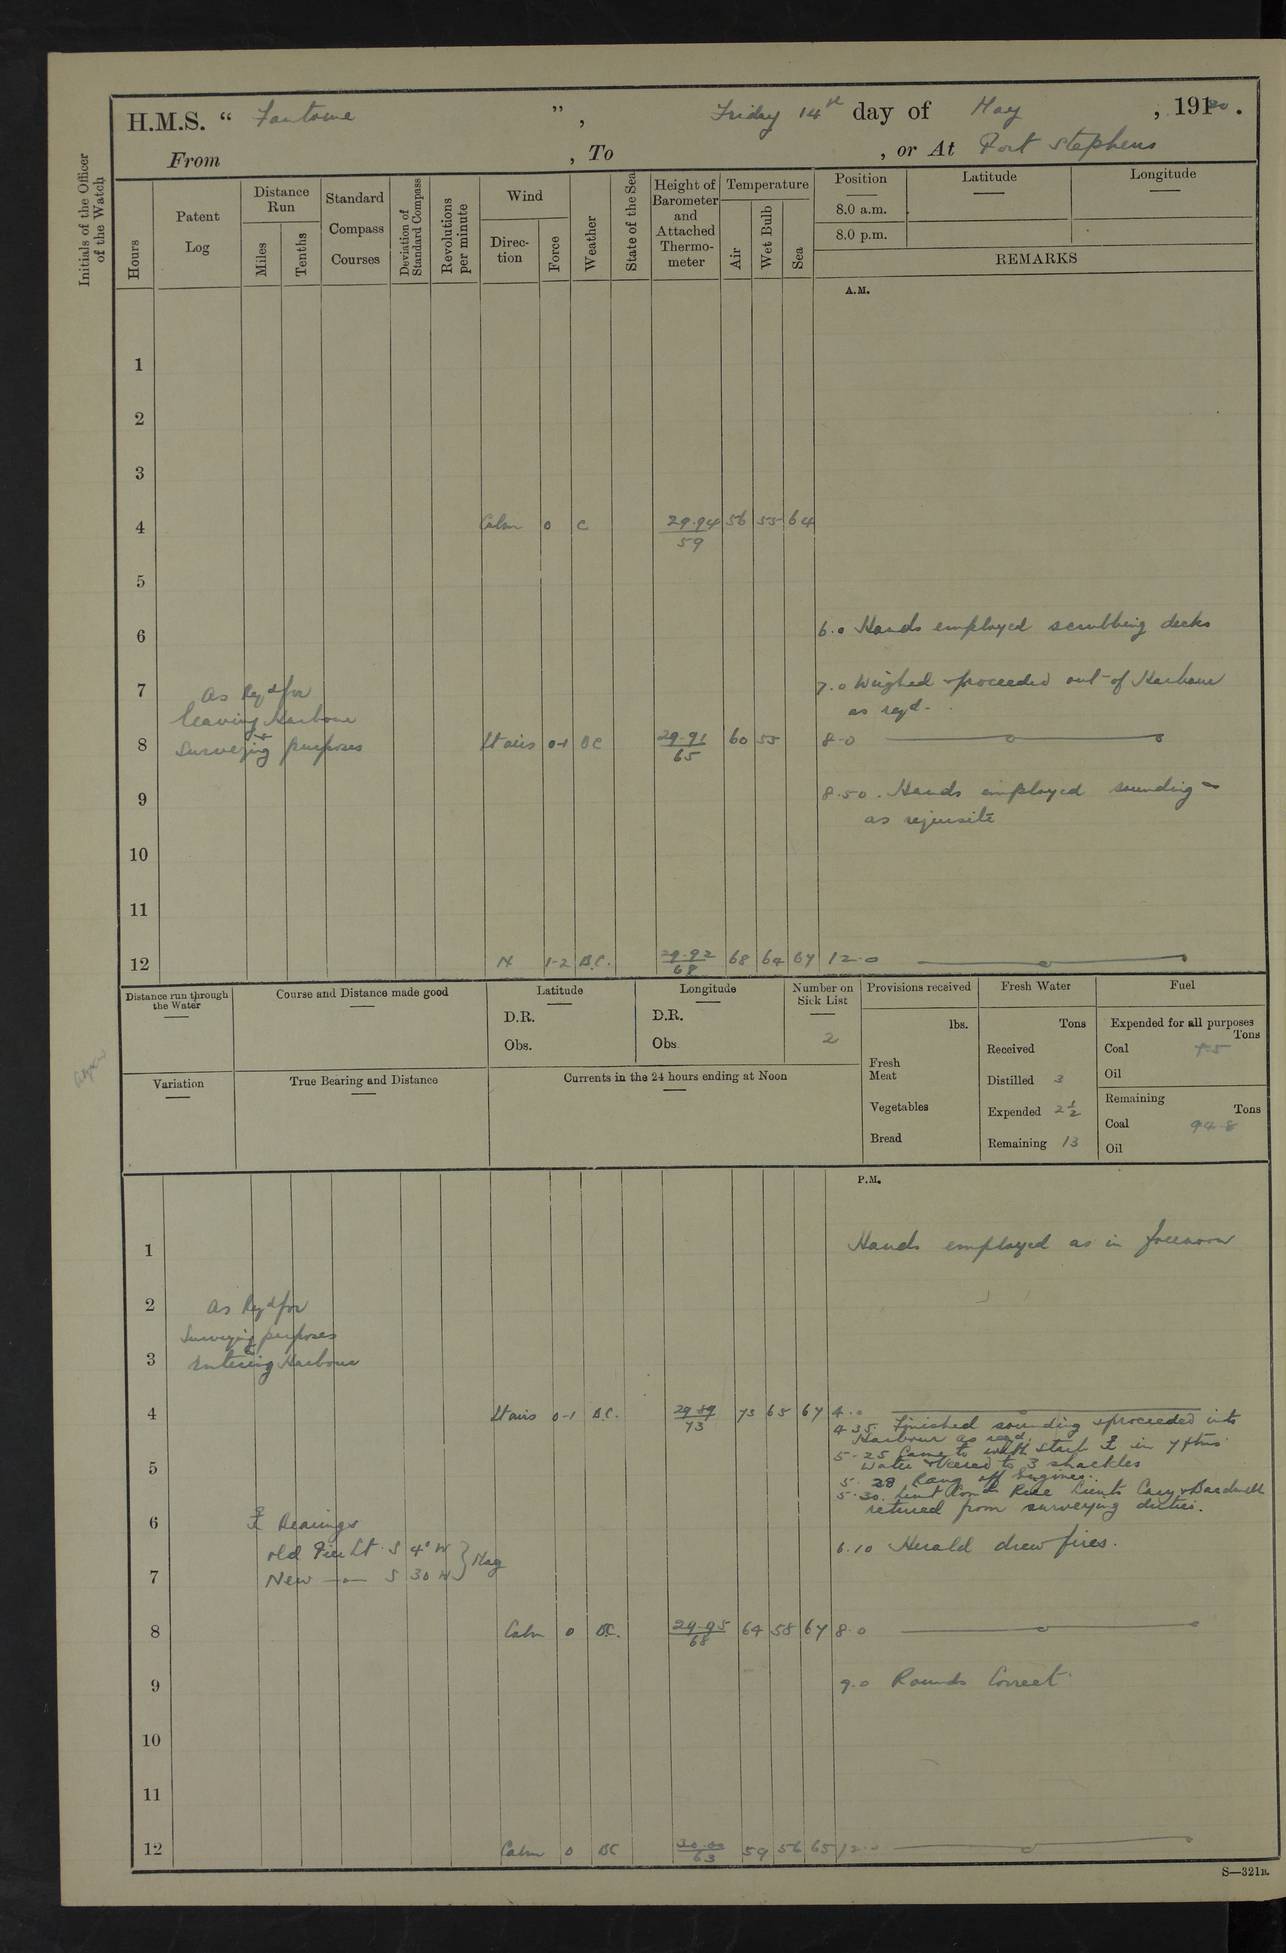 H.M.S. “ Fantome ”, Friday 14th day of May , 1920 .
From , To , or At Port Stephens
Initials of the Officer of the Watch
Hours
Patent Log
Distance Run
Miles
Tenths
Standard Compass Courses
Deviation of Standard Compass
Revolutions per minute
Wind
Direc-tion
Force
Weather
State of the Sea
Height of Barometer and Attached Thermo-meter
Temperature
Air
Wet Bulb
Sea
Position
8.0 a.m.
8.0 p.m.
Latitude
Longitude
REMARKS
A.M.
1
2
3
4 Calm 0 C 29.94 56 55 64
59
5
6 6.0 Hands employed scrubbing decks
7 As Reqd for 7.0 Weighed & proceeded out of Harbour
leaving Harbour as reqd.
&
8 Surveying purposes Lt airs 0-1 BC 29.91 60 55 8.0
65
9 8.50. Hands employed sounding
as requisite
10
11
12 N 1-2 B.C. 29.92 68 64 67 12.0
68
Distance run through the Water
Course and Distance made good
Latitude
D.R.
Obs.
Longitude
D.R.
Obs.
Number on Sick List
2
Provisions received
lbs.
Fresh Meat
Vegetables
Bread
Fresh Water
Tons
Received
Distilled 3
Expended 2½
Remaining 13
Fuel
Expended for all purposes
Tons
Coal 7.5
Oil
Remaining
Tons
Coal 94.8
Oil
Variation
True Bearing and Distance
Currents in the 24 hours ending at Noon
P.M.
1 Hands employed as in forenoon
2 As Reqd for
Surveying purposes
&
3 Entering Harbour
4 Lt airs 0-1 B.C. 29.89 73 65 67 4.0
73
4.35. Finished sounding & proceeded into
Harbour as reqd.
5.25 Came to with Starb in 7 fms
5 Water & Veered to 3 shackles
5.28 Rang off Engines.
5.30. Lieut Comdr Rice Lieuts Cary & Bardwell
returned from surveying duties.
6 Bearings
Old Pier Lt. S 4° W 6.10 Herald drew fires.
7 New S 30 W } Mag
8 Calm 0 B.C. 29.95 64 58 67 8.0
68
9 9.0 Rounds Correct.
10
11
12 Calm 0 BC 30.00 59 56 65 12.0
63
S—321B.